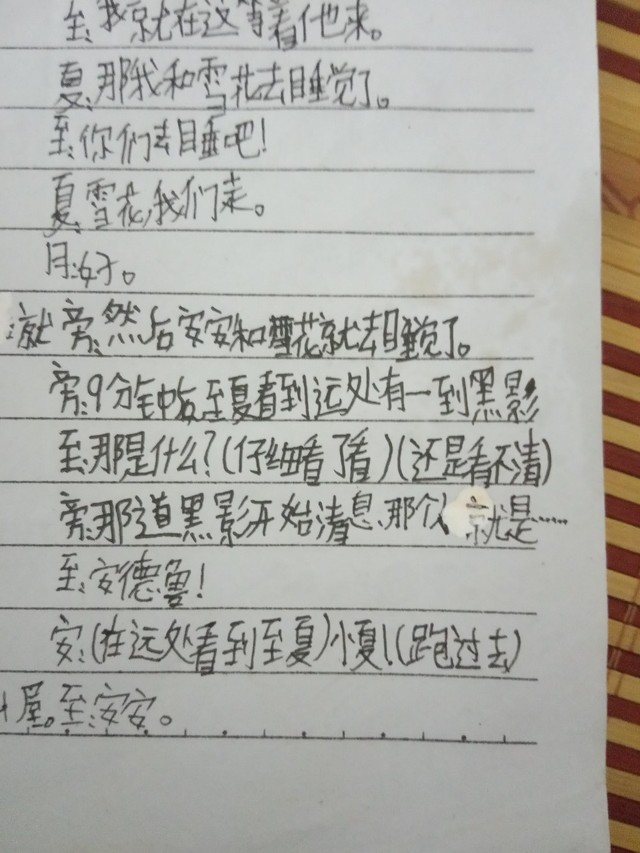 至:我就在这等着他来。
夏:那我和雪花去睡觉了。
至:你们去睡吧!
夏:雪花,我们走。
月:好。
:就 旁:然后安安和雪花就去睡觉了。
旁:9分钟后至夏看到远处有一到黑影
至:那是什么?(仔细看了看)(还是看不清)
旁:那道黑影开始清息,那个 就是……
至:安德鲁!
安:(在远处看到至夏)小夏!(跑过去)
屋。至:安安。